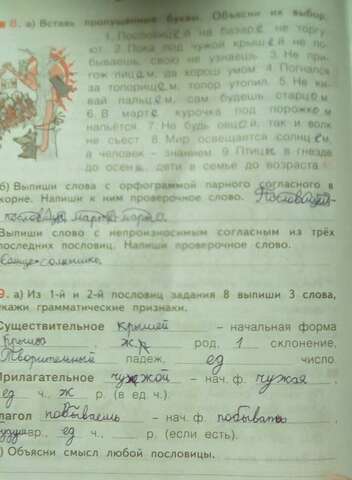 8. а) Вставь пропущенные буквы. Объясни их выбор.
1. Пословицей на базаре не торгу-
ют. 2. Пока под чужой крышей не по-
бываешь, свою не узнаешь. 3. Не при-
гож лицем, да хорош умом. 4. Погнался
за топорищем, топор утопил. 5. Не ки-
вай пальцем, сам будешь старцем.
6. В марте курочка под порожком
напьётся. 7. Не будь овцей, так и волк
не съест. 8. Мир освещается солнцем,
а человек – знанием. 9. Птицы в гнезде
до осени, дети в семье до возраста.
б) Выпиши слова с орфограммой парного согласного в
корне. Напиши к ним проверочное слово.
Выпиши слово с непроизносимым согласным из трёх
последних пословиц. Напиши проверочное слово.
солнышко.
9. а) Из 1-й и 2-й пословиц задания 8 выпиши 3 слова,
укажи грамматические признаки.
Существительное крышей – начальная форма
крыша, ж.р род, 1 склонение,
Творительный падеж, ед число.
Прилагательное чужой – нач. ф. чужая,
ед ч., ж р. (в ед. ч.).
глагол побываешь – нач. ф. побывать,
вр., ед ч., р. (если есть).
) Объясни смысл любой пословицы.